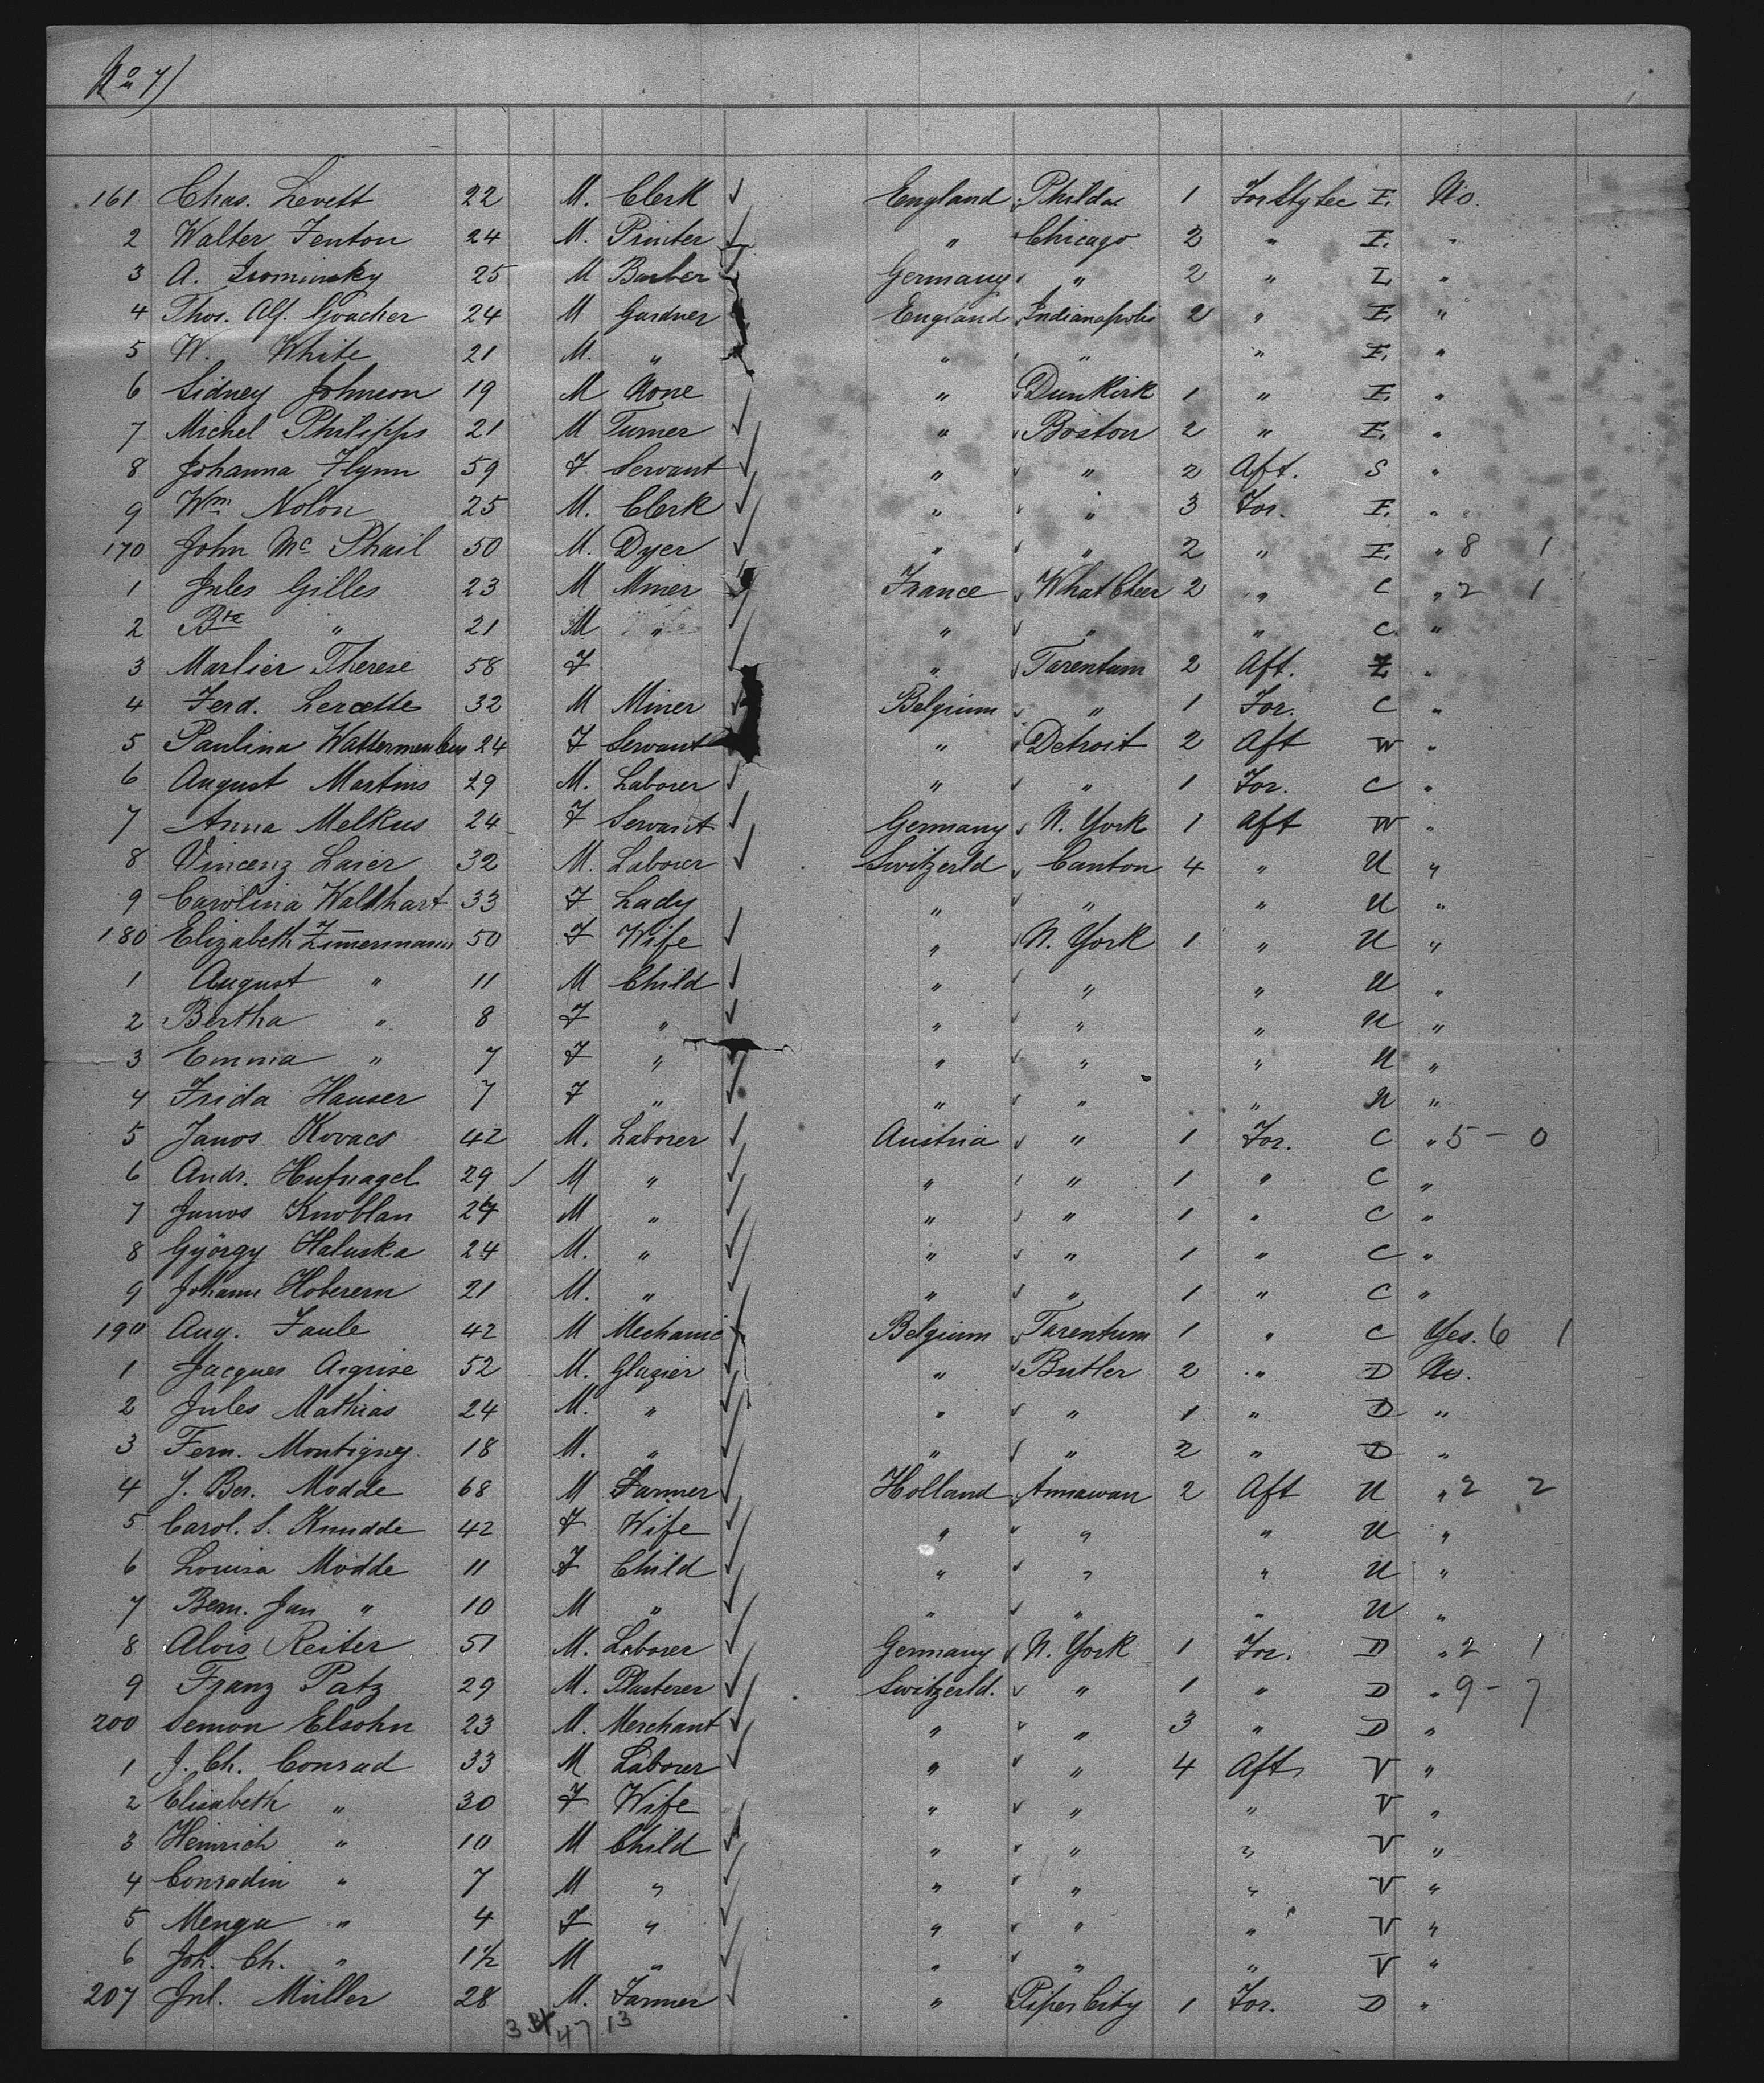 No 7)
161 Chas. Levett 22 M. Clerk ✓ England Philda 1 For Stg tec E. No.
2 Walter Fenton 24 M. Printer ✓ " Chicago 2 " E. "
3 A. 25 M Barber ✓ Germany " 2 " "
4 Thos. Alf. Goacher 24 M Gardner England Indianapolis 2 " E. "
5 W. White 21 M. " " " " E. "
6 Sidney Johnson 19 M None " Dunkirk 1 " E. "
7 Michel Philipps 21 M Turner ✓ " ✓ Boston 2 " E. "
8 Johanna Flynn 59 F. Servant ✓ " ✓ " 2 Aft. S "
9 Wm. Nolon 25 M. Clerk ✓ " ✓ " 3 For. E. "
170 John Mc Phail 50 M. Dyer ✓ " ✓ " 2 " E. " 8 1
1 Jules Gilles 23 M Miner ✓ France ✓ What Cheer 2 " C " 2 1
2 Bte " 21 M " ✓ " ✓ " " C. "
3 Marlier Therese 58 F ✓ " ✓ Tarentum 2 Aft. "
4 Ferd. Lercette 32 M Miner ✓ Belgium ✓ " 1 For. C "
5 Paulina 24 F Servant " ✓ Detroit 2 Aft W "
6 August Martins 29 M. Laborer ✓ " ✓ " 1 For. C "
7 Anna Melkus 24 F Servant ✓ Germany ✓ N. York 1 Aft W "
8 Vincenz Laier 32 M. Laborer ✓ Switzerld ✓ Canton 4 " U "
9 Carolina Waldhart 33 F Lady " ✓ " " U "
180 Elizabeth Zimmermann 50 F Wife ✓ " ✓ N. York 1 " U "
1 August " 11 M Child ✓ " ✓ " " U "
2 Bertha " 8 F " ✓ " ✓ " " U "
3 Emma " 7 F " ✓ " ✓ " " U "
4 Frida Hauser 7 F " ✓ " ✓ " " U "
5 Janos Kovacs 42 M. Laborer ✓ Austria ✓ " 1 For. C " 5 - 0
6 Andr. Hufnagel 29 ✓ M " ✓ " ✓ " 1 " C "
7 Janos Knoblan M " ✓ " ✓ " 1 " C "
8 György Haluska 24 M. " ✓ " ✓ " 1 " C "
9 Johann Hoberern 21 M. " ✓ " ✓ " 1 " C "
190 Aug. Faule 42 M Mechanic ✓ Belgium ✓ Tarentum 1 " C Yes. 6 1
1 Jacques Aigrise 52 M. Glazier ✓ " ✓ Butler 2 " D No.
2 Jules Mathias 24 M. " ✓ " ✓ " 1 " D "
3 Fern. Montigney 18 M. " ✓ " ✓ " 2 " D "
4 J. Ber. Modde 68 M Farmer ✓ Holland Annawan 2 Aft U " 2 2
5 Carol. S. Knudde 42 F Wife ✓ " ✓ " " U "
6 Louisa Modde 11 F Child ✓ " ✓ " " U "
7 Bern. Jan " 10 M " ✓ " ✓ " " U "
8 Alois Reiter 51 M. Laborer ✓ Germany ✓ N. York 1 For. D " 2 1
9 Franz Patz 29 M. Plasterer ✓ Switzerld. ✓ " 1 " D " 9 - 7
200 Semon Elsohn 23 M. Merchant ✓ " ✓ " 3 " D "
1 J. Ch. Conrad 33 M Laborer ✓ " ✓ " 4 Aft V "
2 Elisabeth " 30 F Wife " ✓ " " V "
3 Heinrich " 10 M Child ✓ " ✓ " " V "
4 Conradin " 7 M " ✓ " ✓ " " V "
5 Menga " 4 F " ✓ " ✓ " " V "
6 Joh. Ch. " 1½ M " ✓ " ✓ " " V "
207 Jul. Müller 28 M. Farmer ✓ " Piper City 1 For. D "
3 47 13